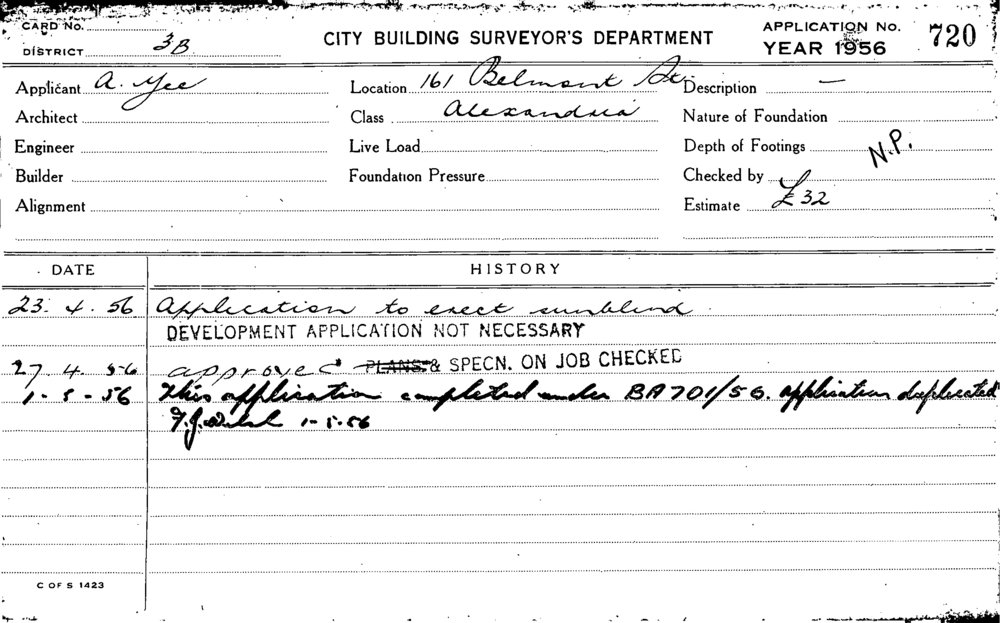 CARD No.
DISTRICT 3B
CITY BUILDING SURVEYOR'S DEPARTMENT
APPLICATION No. 720
YEAR 1956
Applicant A. Yee Location 161 Belmont St Description —
Architect Class Alexandria Nature of Foundation
Engineer Live Load Depth of Footings N.P.
Builder Foundation Pressure Checked by
Alignment Estimate £32
DATE HISTORY
23. 4. 56 Application to erect sunblind
DEVELOPMENT APPLICATION NOT NECESSARY
27. 4. 56 approved PLANS & SPECN. ON JOB CHECKED
1-5-56 This application completed under BA 701/56. application duplicated
1-5-56
C OF S 1423